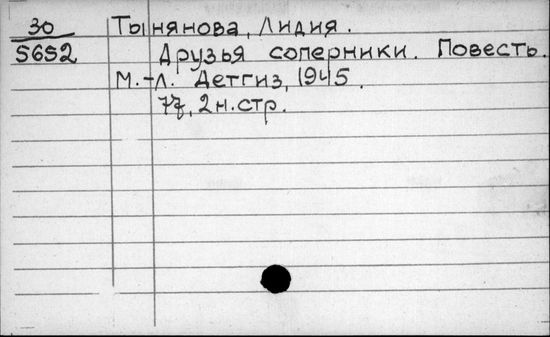 30 Тынянова, Лидия.
5652 Друзья соперники. Повесть.
М.-Л. Детгиз, 1945.
77, 2 н. стр.